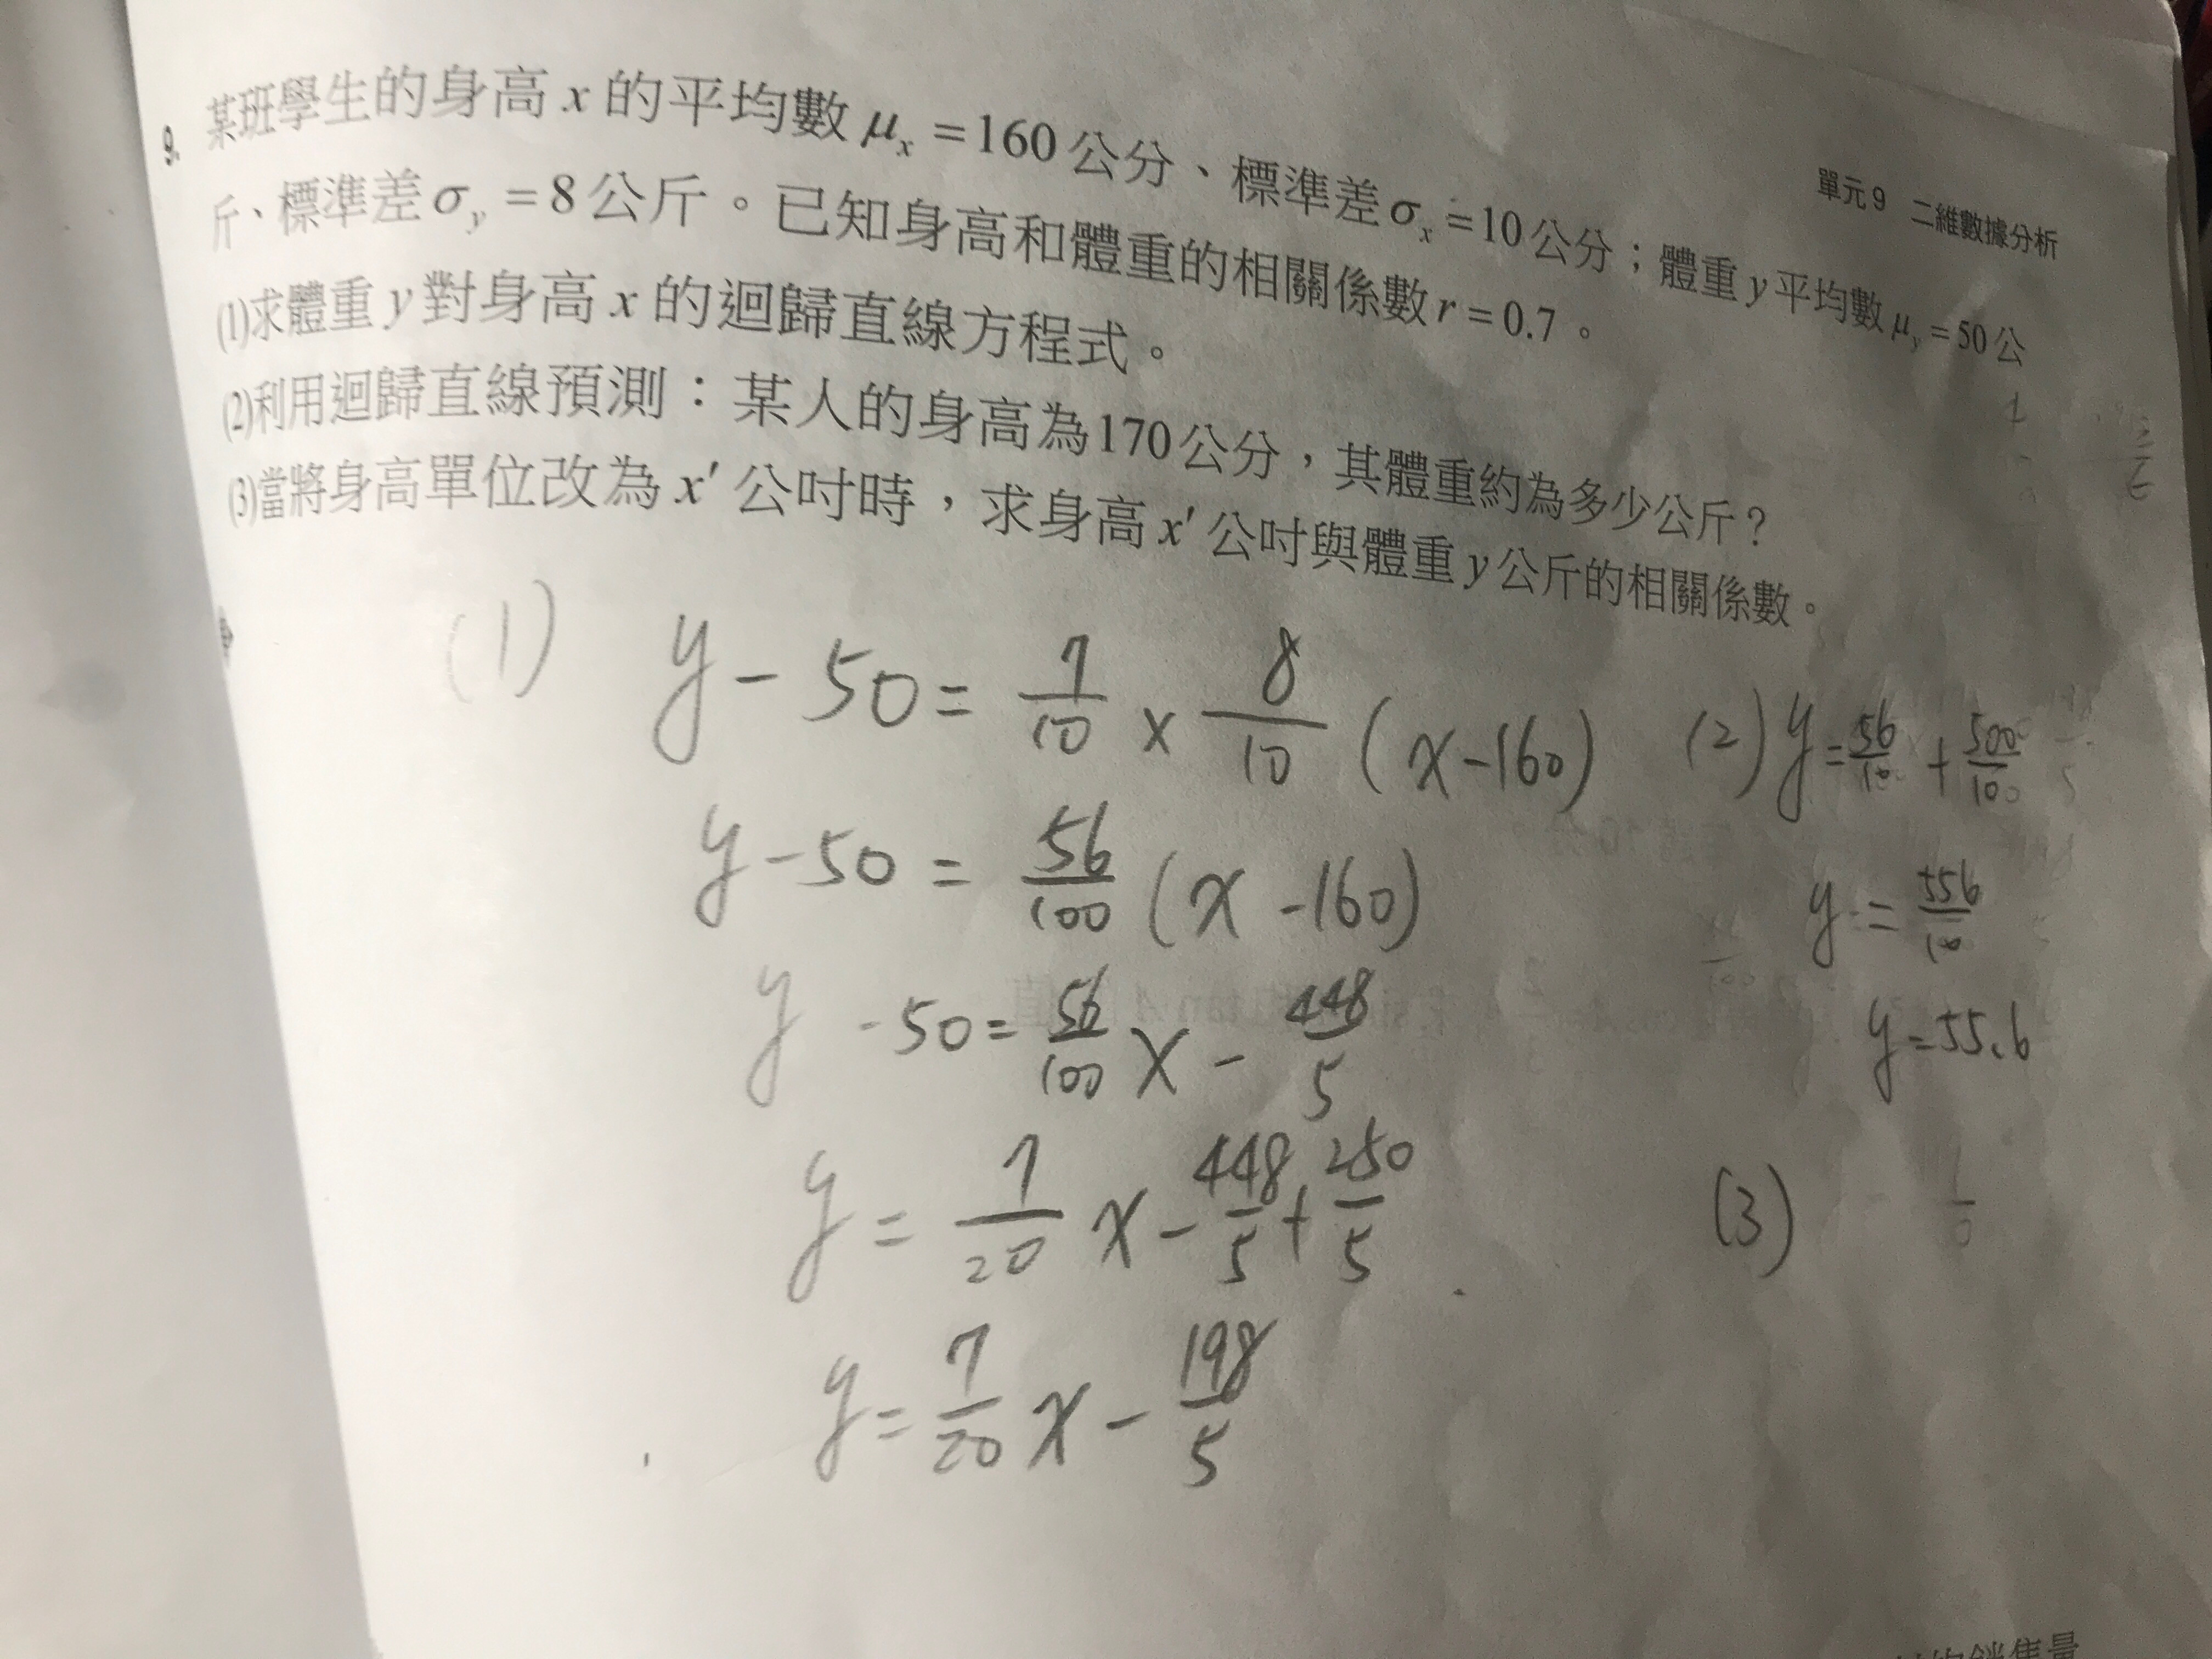 單元9 二維數據分析
9. 某班學生的身高 x 的平均數 μx = 160 公分、標準差 σx = 10 公分；體重 y 平均數 μy = 50 公
斤、標準差 σy = 8 公斤。已知身高和體重的相關係數 r = 0.7。
(1)求體重 y 對身高 x 的迴歸直線方程式。
(2)利用迴歸直線預測：某人的身高為170公分，其體重約為多少公斤？
(3)當將身高單位改為 x′ 公吋時，求身高 x′ 公吋與體重 y 公斤的相關係數。
(1) y - 50 = 7/10 × 8/10 (x - 160)
y - 50 = 56/100 (x - 160)
y - 50 = 56/100 x - 448/5
y = 7/20 x - 448/5 + 250/5
y = 7/20 x - 198/5
(2) y = 56/10 + 500/10
y = 556/10
y = 55.6
(3)